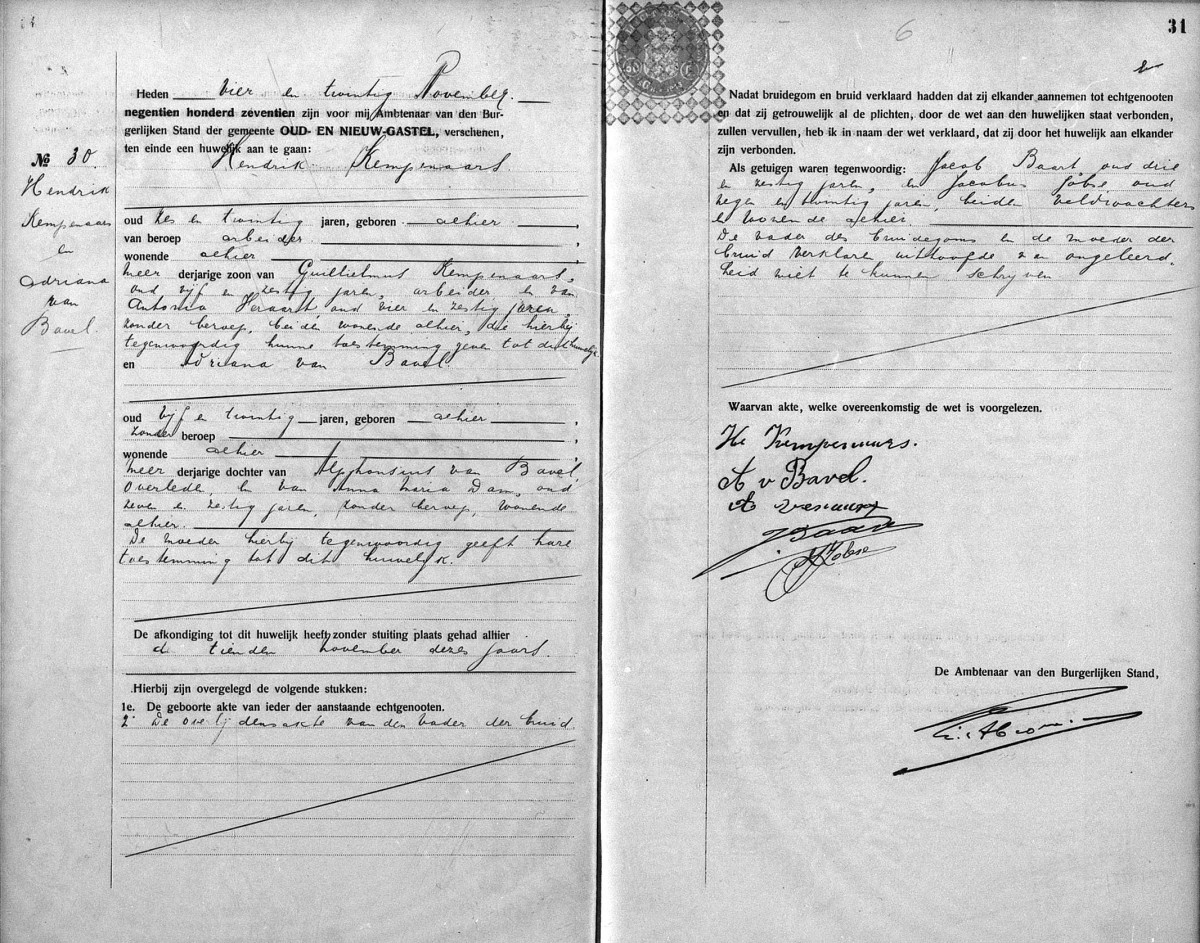 Heden vier en twintig November
negentien honderd zeventien zijn voor mij Ambtenaar van den Bur-
gerlijken Stand der gemeente OUD- EN NIEUW-GASTEL, verschenen,
ten einde een huwelijk aan te gaan:
Hendrik Kempenaars
№ 30
Hendrik
Kempenaars
en
Adriana
van
Bavel.
oud zes en twintig jaren, geboren alhier,
van beroep arbeider,
wonende alhier,
meer derjarige zoon van Guillielmus Kempenaars,
oud vijf en zestig jaren, arbeider en van
Antonia Heraart, oud vier en zestig jaren,
zonder beroep, beiden wonende alhier, die hierbij
tegenwoordig hunne toestemming geven tot dit huwelijk
en Adriana van Bavel.
oud vijf en twintig jaren, geboren alhier,
zonder beroep,
wonende alhier,
meer derjarige dochter van Alphonsius van Bavel,
overlede, en van Anna Maria Dam, oud
zeven en zestig jaren, zonder beroep, wonende
alhier.
De moeder hierbij tegenwoordig geeft hare
toestemming tot dit huwelijk.
De afkondiging tot dit huwelijk heeft zonder stuiting plaats gehad alhier
d tienden November dezes jaars.
Hierbij zijn overgelegd de volgende stukken:
1e. De geboorte akte van ieder der aanstaande echtgenooten.
2 De overlijdensakte van den vader der bruid
6
31
Nadat bruidegom en bruid verklaard hadden dat zij elkander aannemen tot echtgenooten
en dat zij getrouwelijk al de plichten, door de wet aan den huwelijken staat verbonden,
zullen vervullen, heb ik in naam der wet verklaard, dat zij door het huwelijk aan elkander
zijn verbonden.
Als getuigen waren tegenwoordig: Jacob Baart, oud drie
en zestig jaren, en Jacobus Jobse, oud
negen en twintig jaren, beiden veldwachters
en wonende alhier
De vader des bruidegoms en de moeder der
bruid verklaren uithoofde van ongeleerd.
heid niet te kunnen schrijven
Waarvan akte, welke overeenkomstig de wet is voorgelezen.
He Kempenaars.
A v Bavel.
A
J Baart
J Jobse
De Ambtenaar van den Burgerlijken Stand,